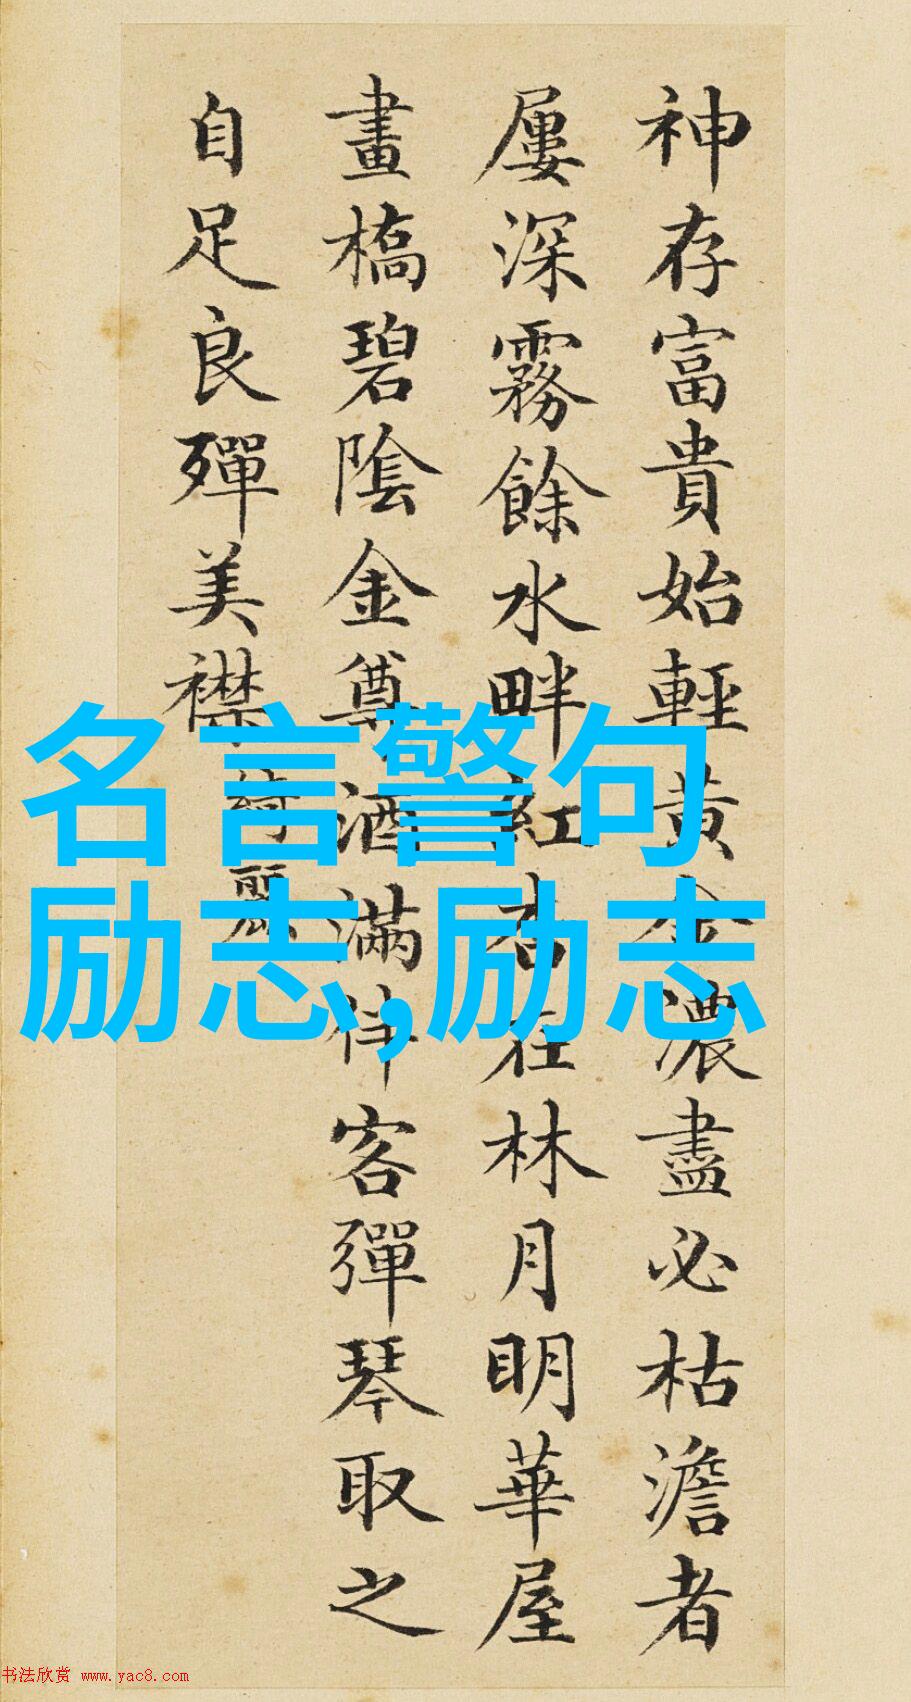 神存富貴始輕黃金濃盡必枯澹者
屢深霧餘水畔紅杏在林月明華屋
畫橋碧陰金尊酒滿伴客彈琴取之
自足良殫美襟
綺麗
名言警句
励志,励志
书法欣赏 www.yac8.com